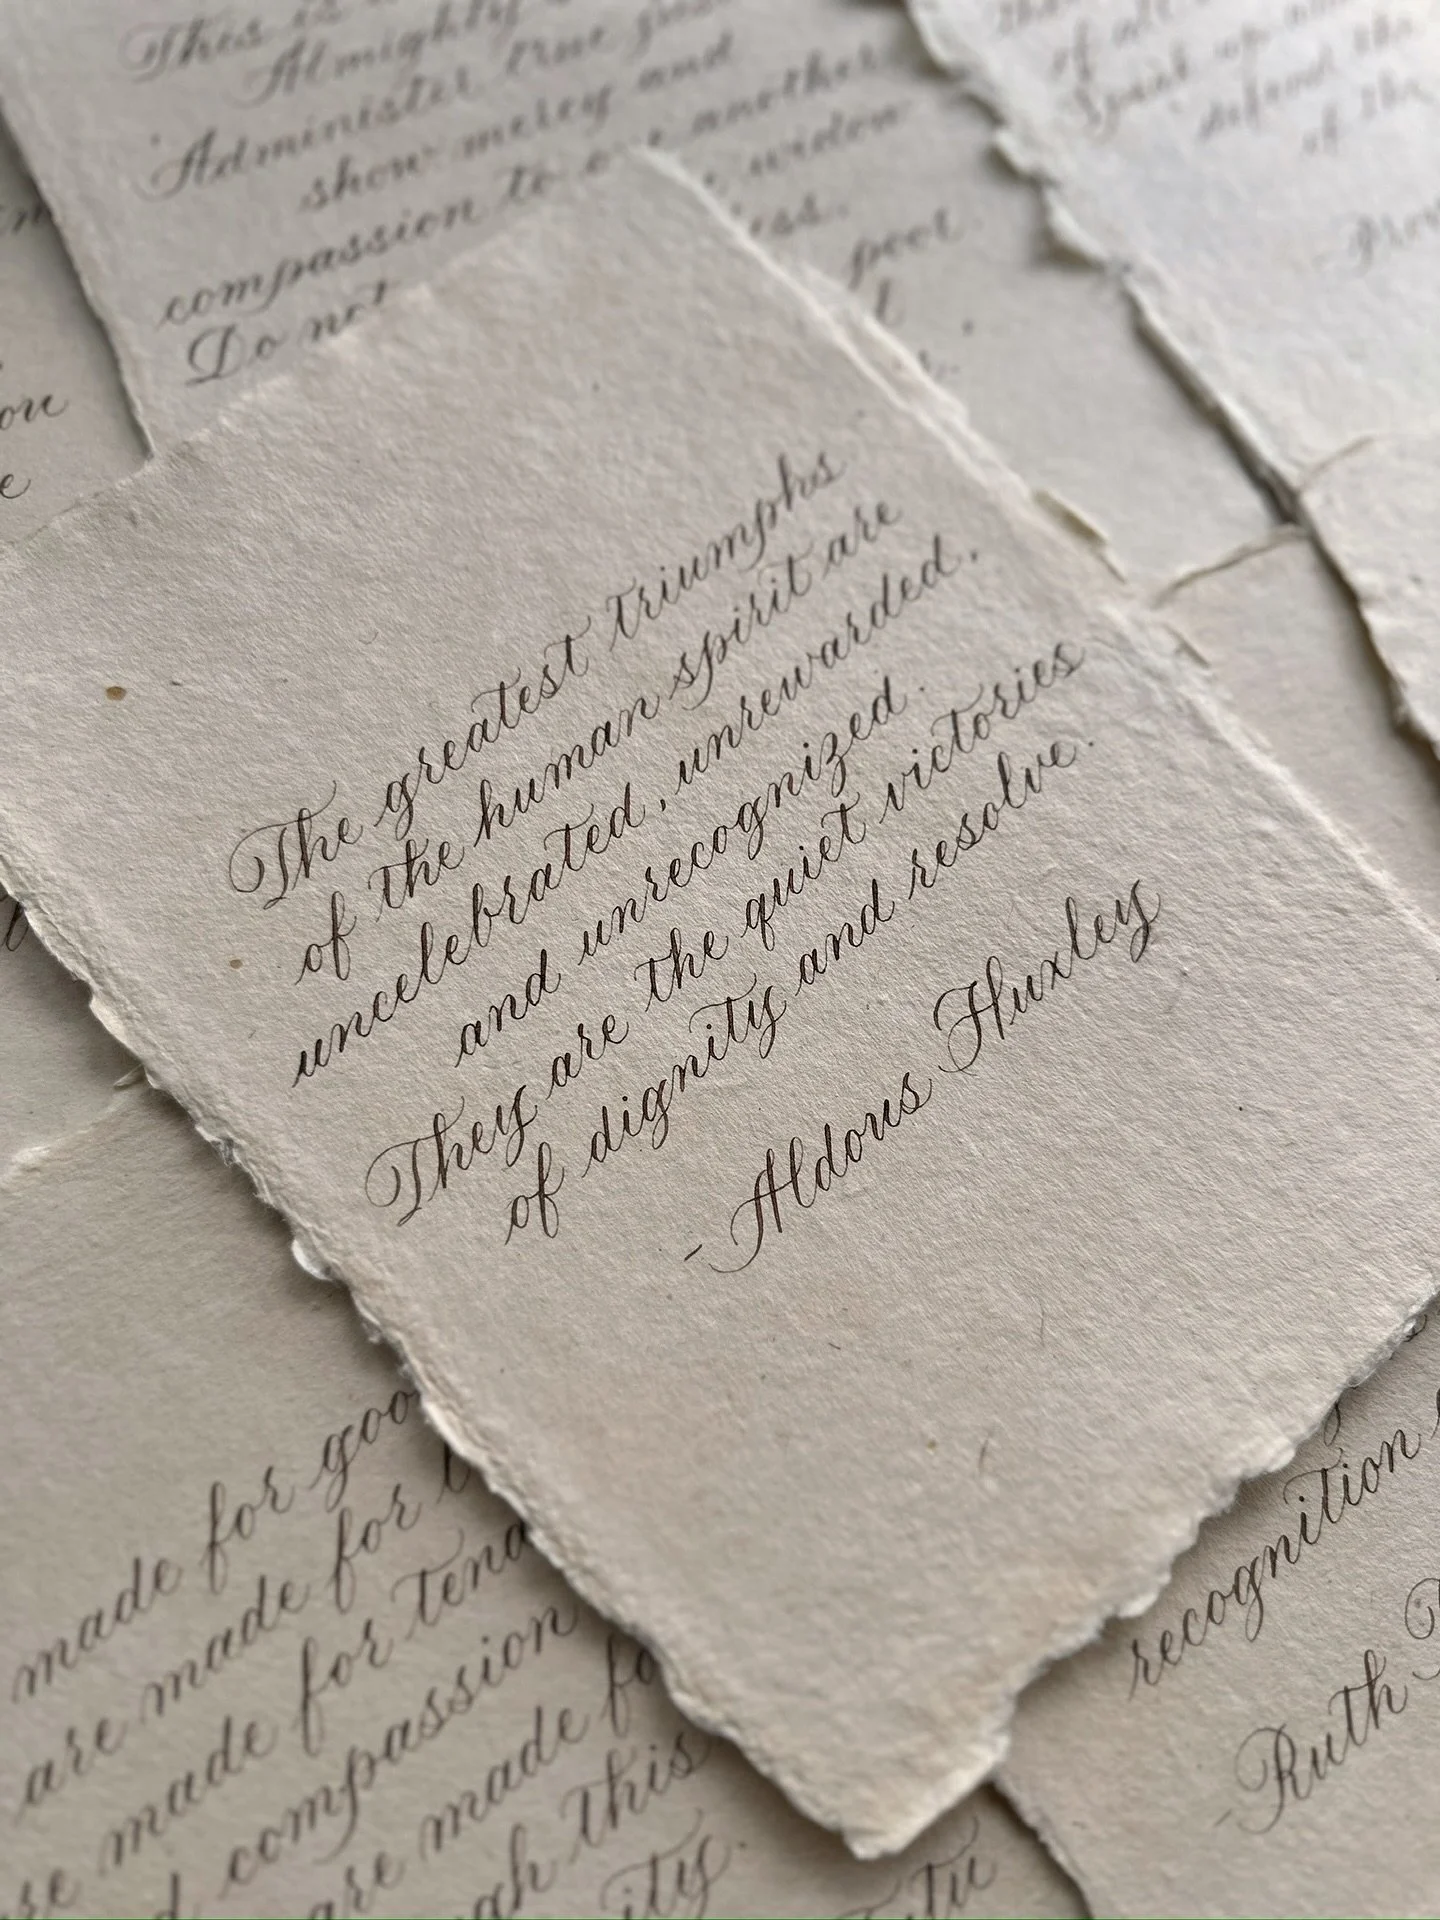 This is
Almighty
'Administer true
show mercy and
compassion to another
widow
poor
Do not
of
defend the
of the
The greatest triumphs
of the human spirit are
uncelebrated, unrewarded.
and unrecognized.
They are the quiet victories
of dignity and resolve.
-Aldous Huxley
made for
are made for
made for
compassion
are made
this
recognition
-Ruth